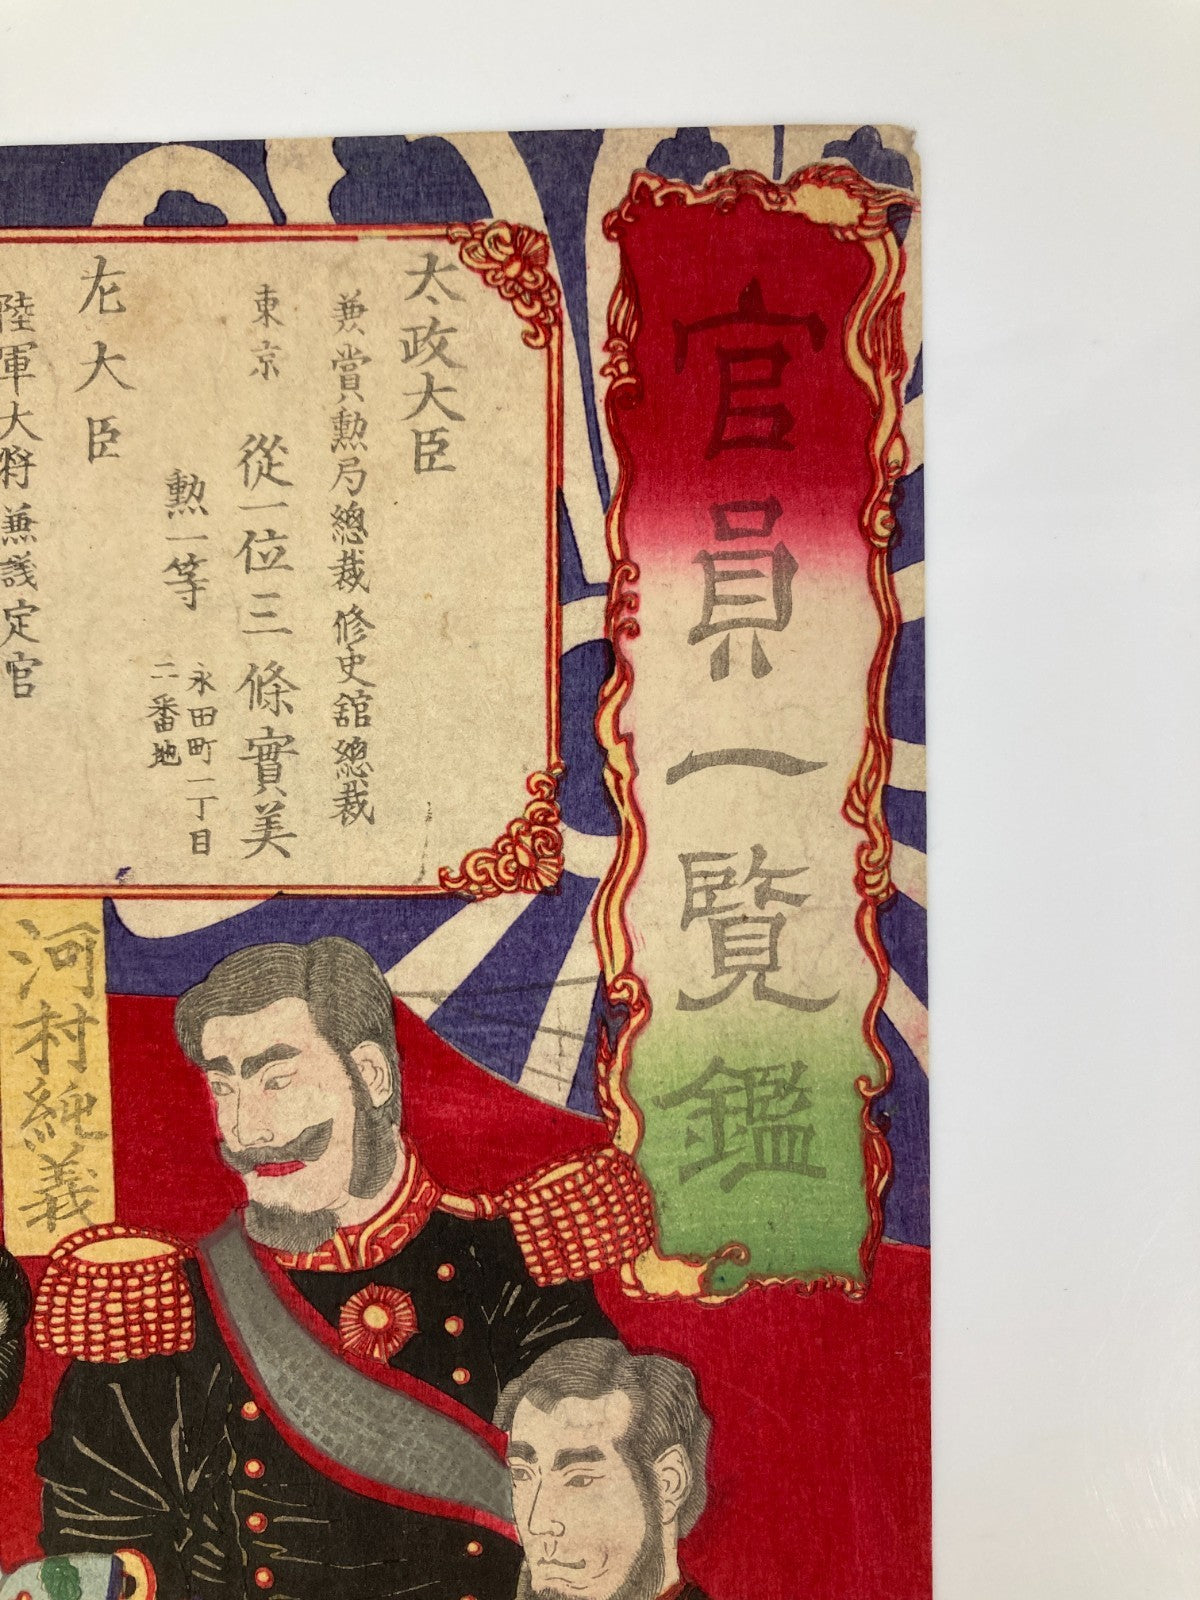 官員一覧鑑
太政大臣
兼賞勲局總裁修史舘總裁
東京 從一位三條實美
勲一等
永田町一丁目
二番地
左大臣
陸軍大將兼議定官
河村純義